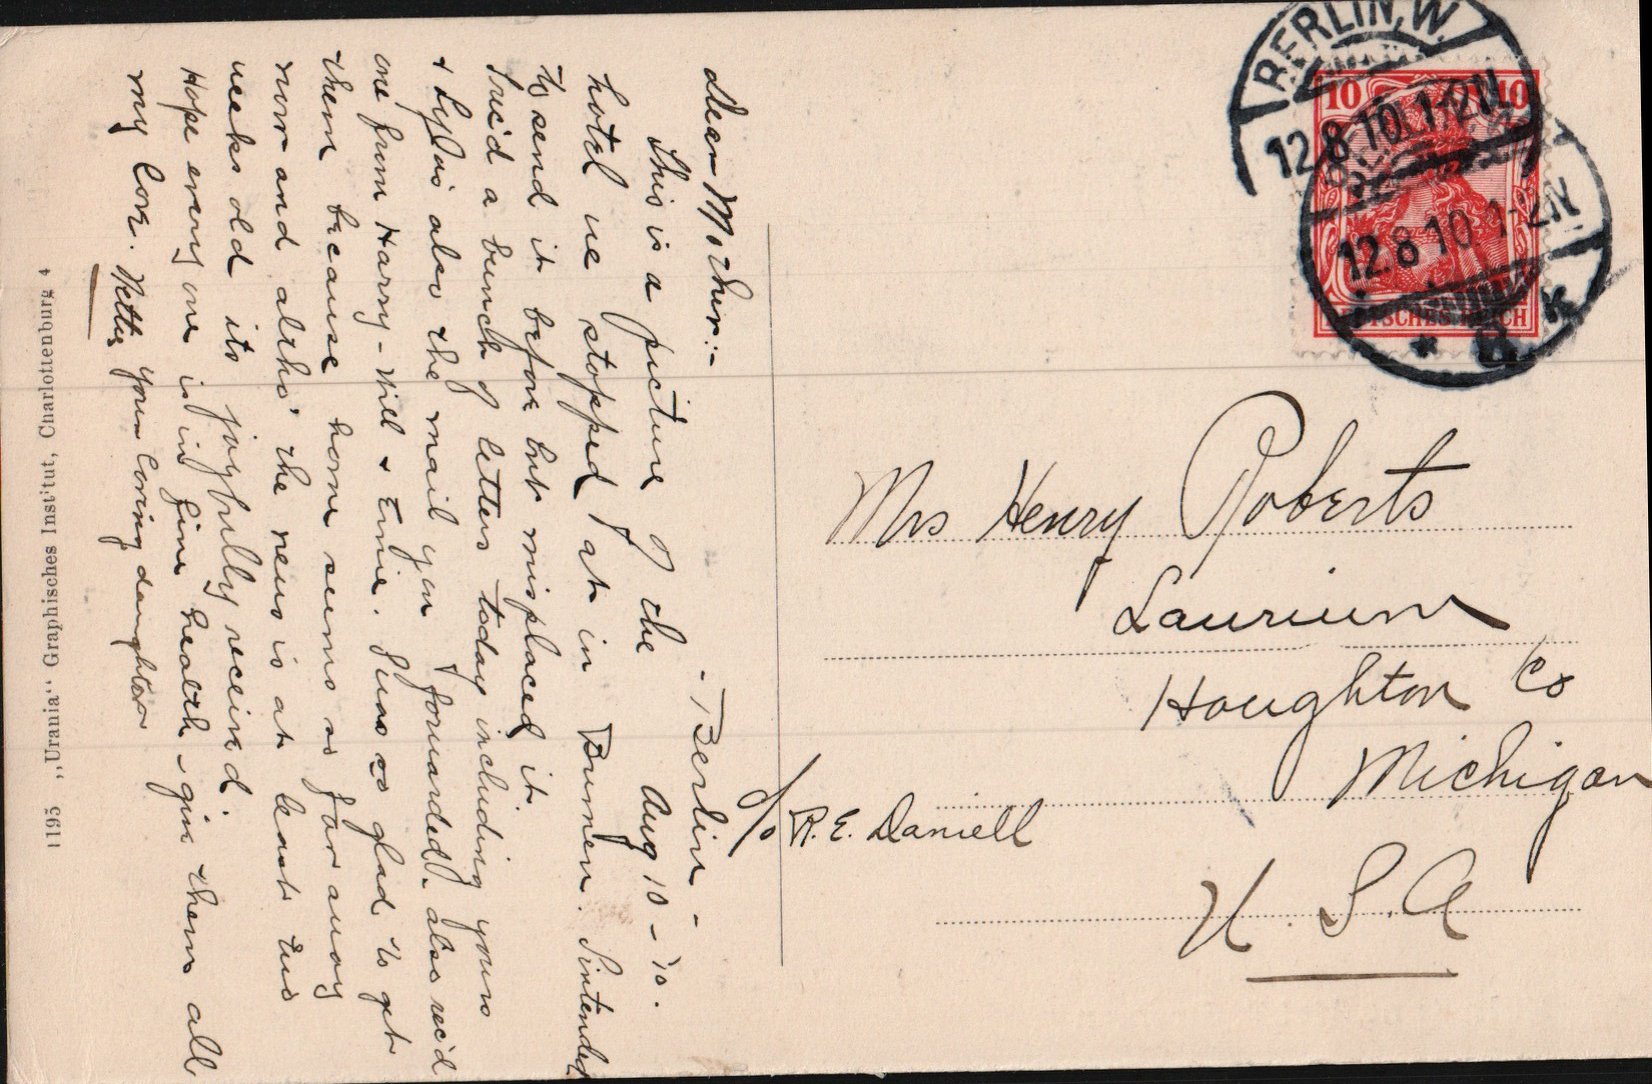 - Berlin -
Aug 10 - '10.
Dear Mother:-
This is a picture of the
hotel we stopped at in Bremen. I intended
to send it before but misplaced it
Rec'd a bunch of letters today including yours
+ Lydia's also the mail you forwarded. also rec'd
one from Harry - Will + Ernie. I was so glad to get
them because home seems so far away
now and altho' the news is at least two
weeks old its joyfully received.
Hope every one is in fine health - give them all
my love. Your loving daughter
Netty
1195 „Urania“ Graphisches Institut, Charlottenburg 4
BERLIN, W.
12.8.10.1-2N.
12.8.10.1-2N
* 8 k
10 10
DEUTSCHES REICH
Mrs Henry Roberts
Laurium
Houghton Co
Michigan
c/o R. E. Daniell
U. S. A